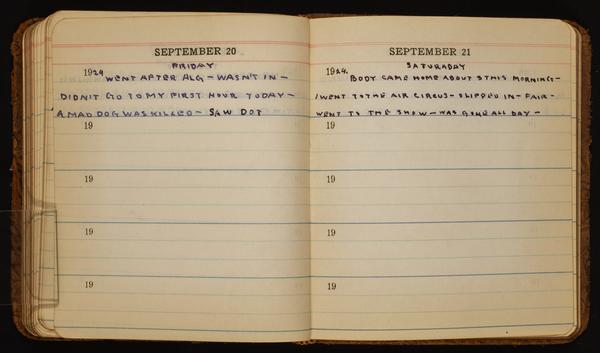 SEPTEMBER 20
FRIDAY
1929 WENT AFTER ALG - WASN'T IN -
DIDN'T GO TO MY FIRST HOUR TODAY -
A MAD DOG WAS KILLED - SAW DOT
19
19
19
19
SEPTEMBER 21
SATURADAY
1929. BODY CAME HOME ABOUT 3 THIS MORNING -
I WENT TO THE AIR CIRCUS - SLIPPED IN - FAIR -
WENT TO THE SHOW - WAS GONE ALL DAY -
19
19
19
19